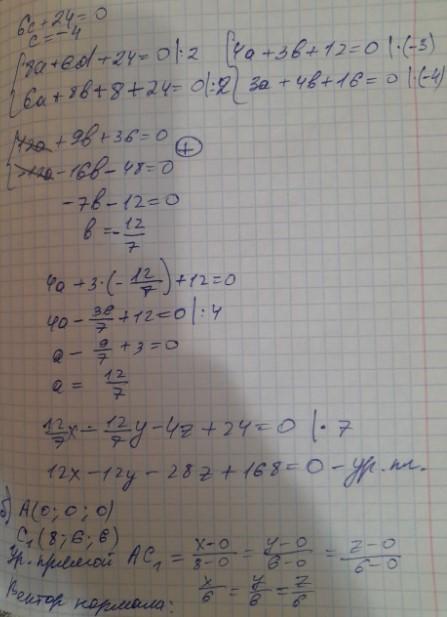 6c + 24 = 0
c = -4
{8a + 6b + 24 = 0 |:2 {4a + 3b + 12 = 0 |·(-3)
{6a + 8b + 8 + 24 = 0 |:2 {3a + 4b + 16 = 0 |·(-4)
{12a + 9b + 36 = 0
{-12a - 16b - 48 = 0 (+)
-7b - 12 = 0
b = -12/7
4a + 3·(-12/7) + 12 = 0
4a - 36/7 + 12 = 0 |:4
a - 9/7 + 3 = 0
a = 12/7
12/7x - 12/7y - 4z + 24 = 0 |·7
12x - 12y - 28z + 168 = 0 - ур. пл.
б) A(0; 0; 0)
C₁(8; 6; 6)
Ур. прямой AC₁ = x-0/8-0 = y-0/6-0 = z-0/6-0
x/6 = y/6 = z/6
Вектор нормала: